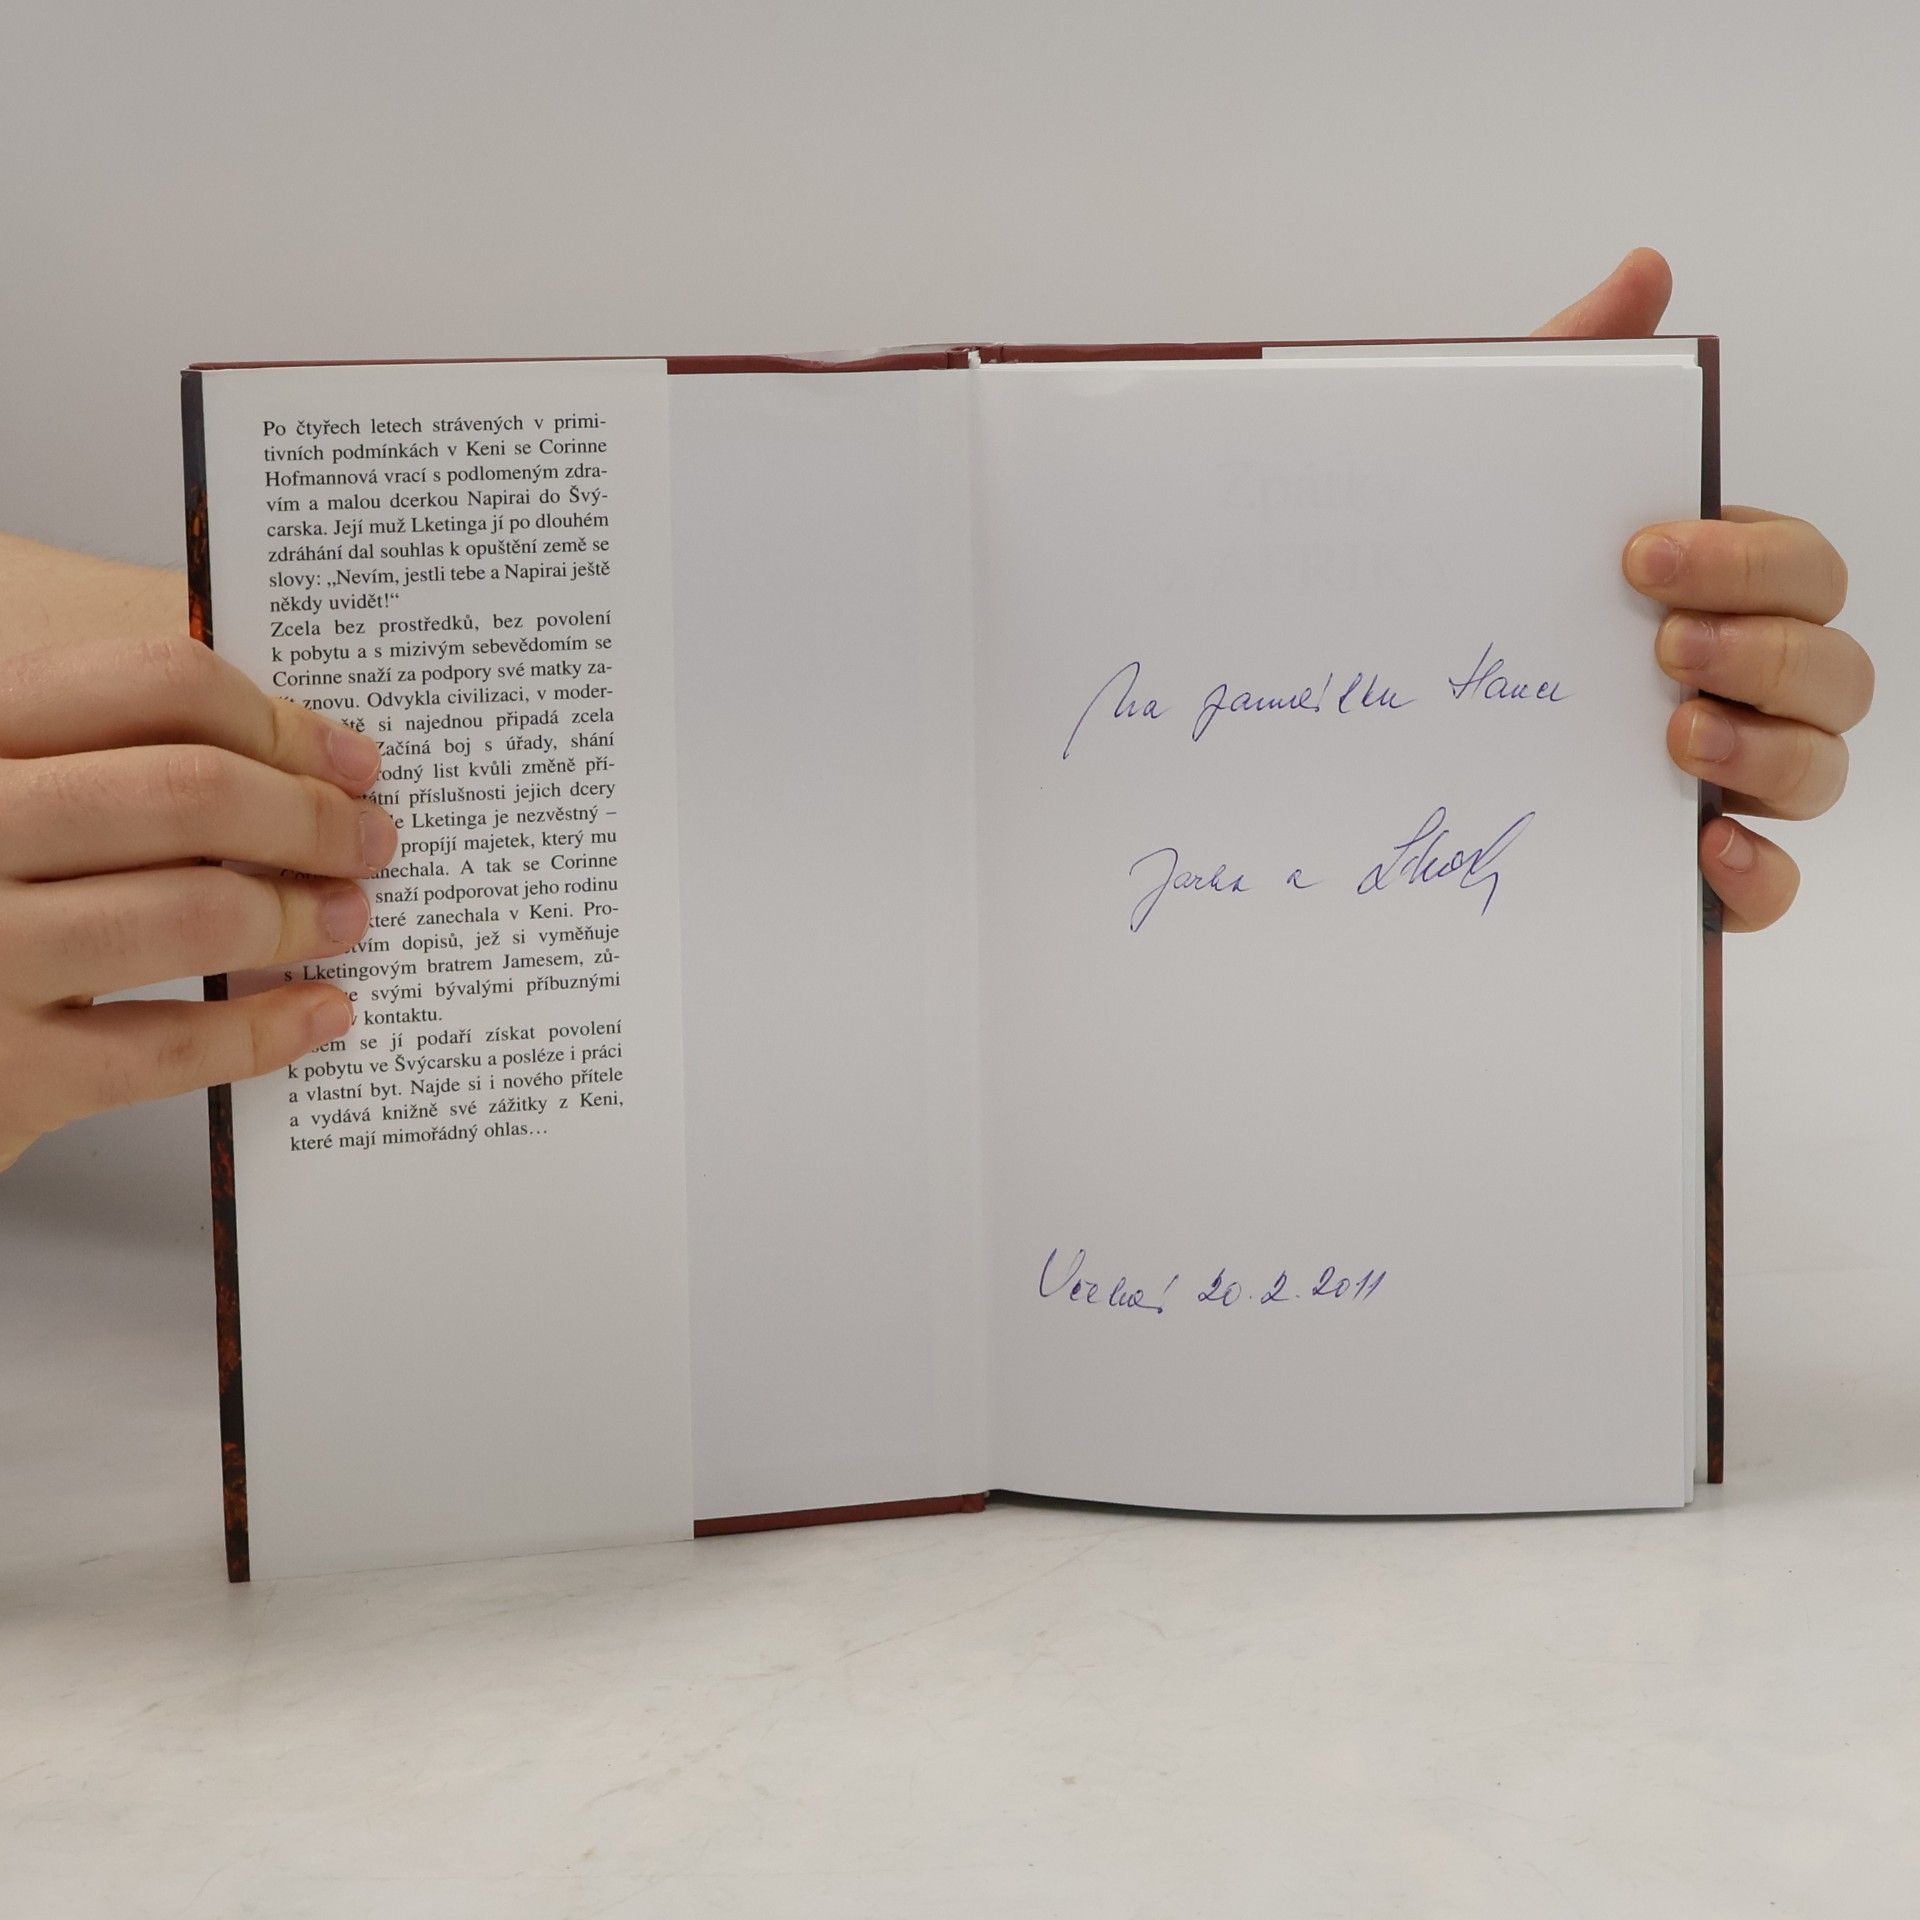 Po čtyřech letech strávených v primi-
tivních podmínkách v Keni se Corinne
Hofmannová vrací s podlomeným zdra-
vím a malou dcerkou Napirai do Švý-
carska. Její muž Lketinga jí po dlouhém
zdráhání dal souhlas k opuštění země se
slovy: „Nevím, jestli tebe a Napirai ještě
někdy uvidět!“
Zcela bez prostředků, bez povolení
k pobytu a s mizivým sebevědomím se
Corinne snaží za podpory své matky za-
znovu. Odvykla civilizaci, v moder-
si najednou připadá zcela
Začíná boj s úřady, shání
rodný list kvůli změně pří-
příslušnosti jejich dcery
Lketinga je nezvěstný –
propíjí majetek, který mu
A tak se Corinne
snaží podporovat jeho rodinu
které zanechala v Keni. Pro-
dopisů, jež si vyměňuje
s Lketingovým bratrem Jamesem, zů-
svými bývalými příbuznými
v kontaktu.
se jí podaří získat povolení
k pobytu ve Švýcarsku a posléze i práci
a vlastní byt. Najde si i nového přítele
a vydává knižně své zážitky z Keni,
které mají mimořádný ohlas…
Na památku Hance
Jarka a
20.2.2011